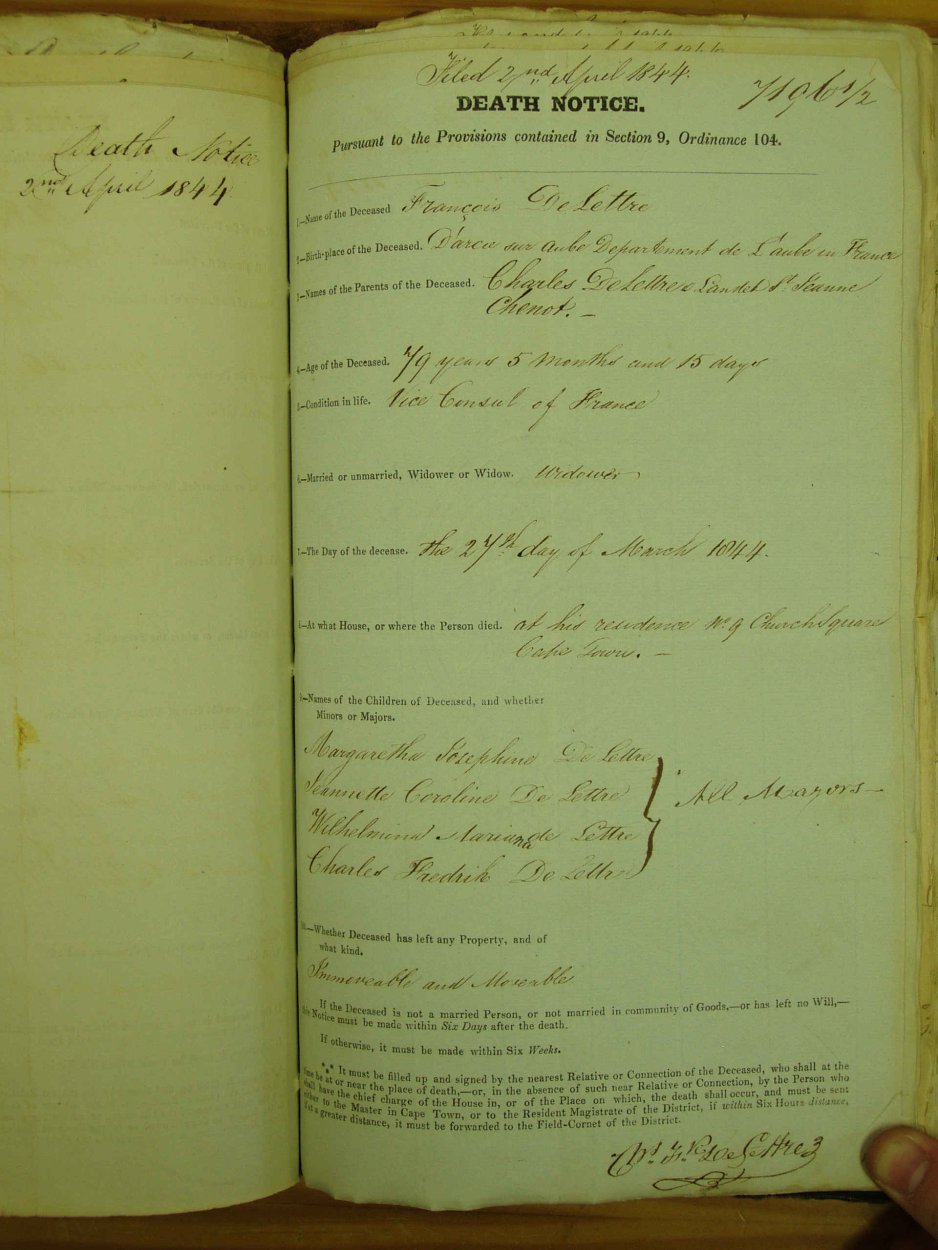 Death Notice
2nd April 1844
Filed 2nd April 1844.
7196 1/2
DEATH NOTICE.
Pursuant to the Provisions contained in Section 9, Ordinance 104.
1.—Name of the Deceased François De Lettre
2.—Birth-place of the Deceased. D'arcis sur aube Departement de L'aube in France
3.—Names of the Parents of the Deceased. Charles De Lettre & St Jeanne
Chenot. —
4.—Age of the Deceased. 79 years 5 Months and 15 days
5.—Condition in life. Vice Consul of France
6.—Married or unmarried, Widower or Widow. Widower
7.—The Day of the decease. the 27th day of March 1844.
8.—At what House, or where the Person died. at his residence No. 9 Church Square
Cape Town. —
9.—Names of the Children of Deceased, and whether
Minors or Majors.
Margaretha Josephine De Lettre
Jeannette Coroline De Lettre
Wilhelmina Mariana de Lettre
Charles Fredrik De Lettre
All Mayors —
10.—Whether Deceased has left any Property, and of
what kind.
Immoveable and Moveable
If the Deceased is not a married Person, or not married in community of Goods,—or has left no Will,—
this Notice must be made within Six Days after the death.
If otherwise, it must be made within Six Weeks.
*** It must be filled up and signed by the nearest Relative or Connection of the Deceased, who shall at the
time be at or near the place of death,—or, in the absence of such near Relative or Connection, by the Person who
shall have the chief charge of the House in, or of the Place on which, the death shall occur, and must be sent
either to the Master in Cape Town, or to the Resident Magistrate of the District, if within Six Hours distance,
if at a greater distance, it must be forwarded to the Field-Cornet of the District.
Chs. Fk. De Lettre